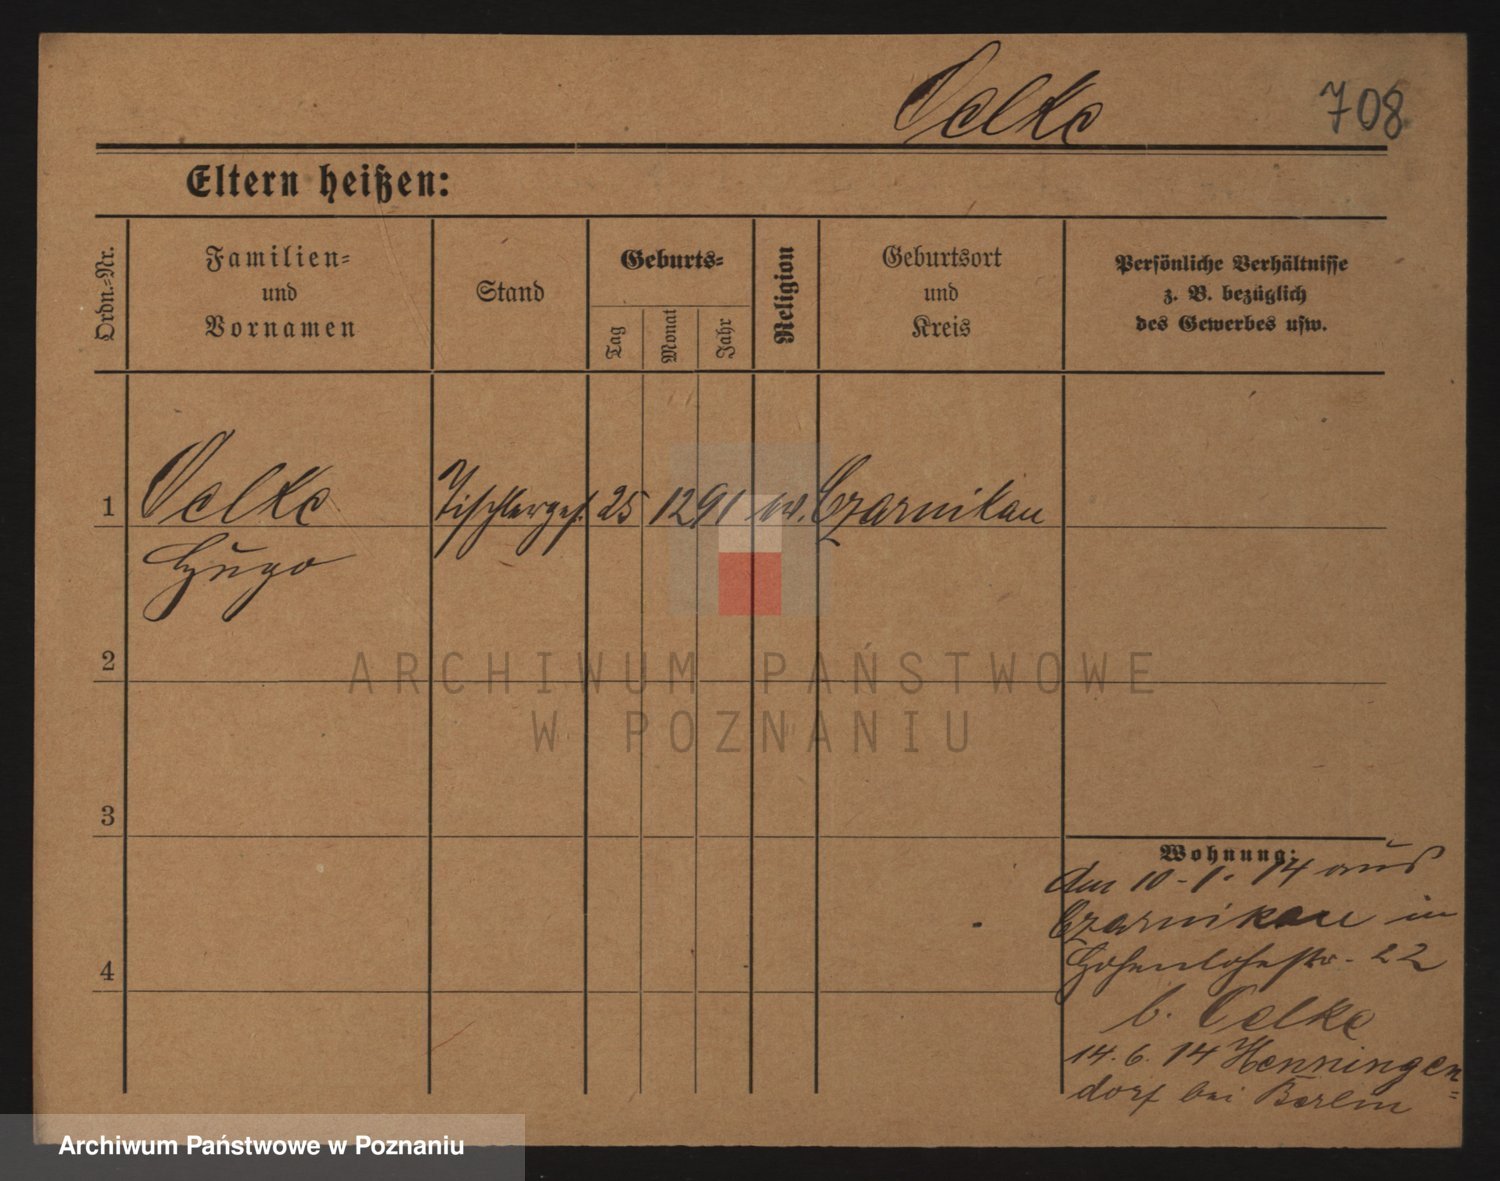 Oelke
708
Eltern heißen:
Ordn.-Nr.
Familien-
und
Vornamen
Stand
Geburts-
Tag
Monat
Jahr
Religion
Geburtsort
und
Kreis
Persönliche Verhältnisse
z. B. bezüglich
des Gewerbes usw.
1
Oelke
Tischlerges. 25 12 91 ev. Czarnikau
Hugo
2
ARCHIWUM PAŃSTWOWE
W POZNANIU
3
Wohnung:
Am 10-1. 14 aus
Czarnikau in
Hohenlohestr. 22
b. Oelke
14.6.14 Henningen-
dorf bei Berlin
4
Archiwum Państwowe w Poznaniu